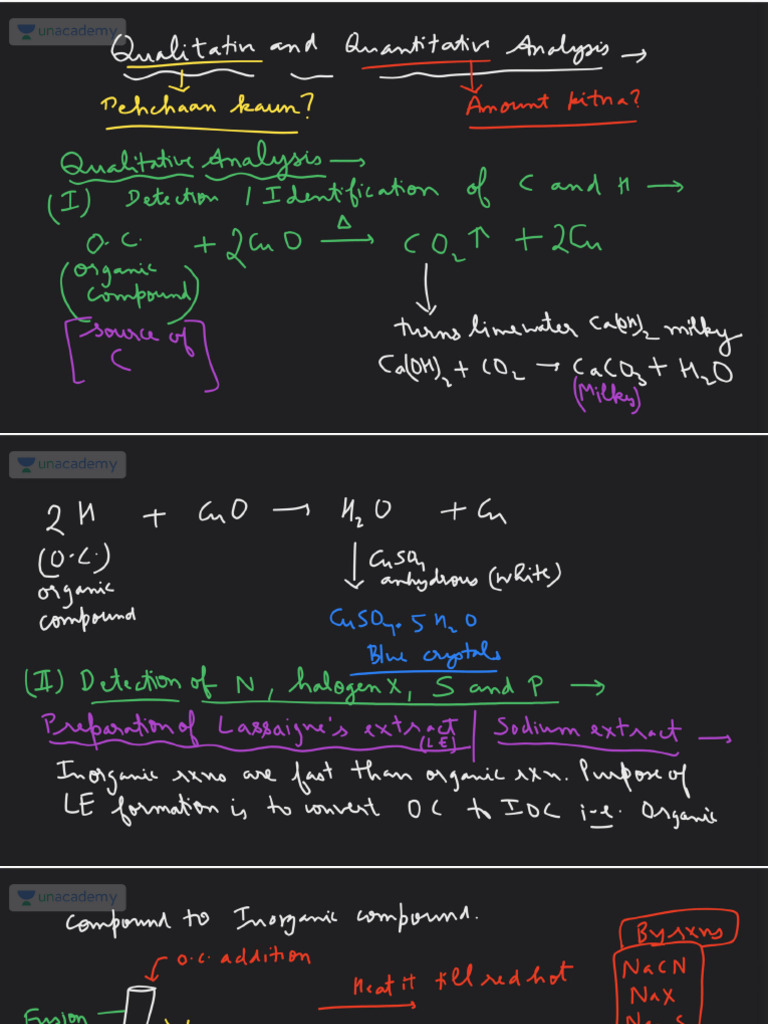 unacademy
Qualitativ and Quantitative Analysis →
Pehchaan kaun?
Amount kitna?
Qualitative Analysis →
(I) Detection / Identification of C and H →
O.C. + 2CuO —Δ→ CO₂↑ + 2Cu
(organic
compound)
[source of
C]
turns limewater Ca(OH)₂ milky
Ca(OH)₂ + CO₂ → CaCO₃ + H₂O
(Milky)
unacademy
2H + CuO → H₂O + Cu
(O.C.)
organic
compound
CuSO₄
anhydrous (white)
CuSO₄.5H₂O
Blue crystals
(II) Detection of N, halogen X, S and P →
Preparation of Lassaigne's extract | Sodium extract →
(LE)
Inorganic rxns are fast than organic rxn. Purpose of
LE formation is to convert OC to IOC i.e. Organic
unacademy
compound to Inorganic compound.
O.C. addition
Heat it till red hot
By rxns
NaCN
NaX
Fusion